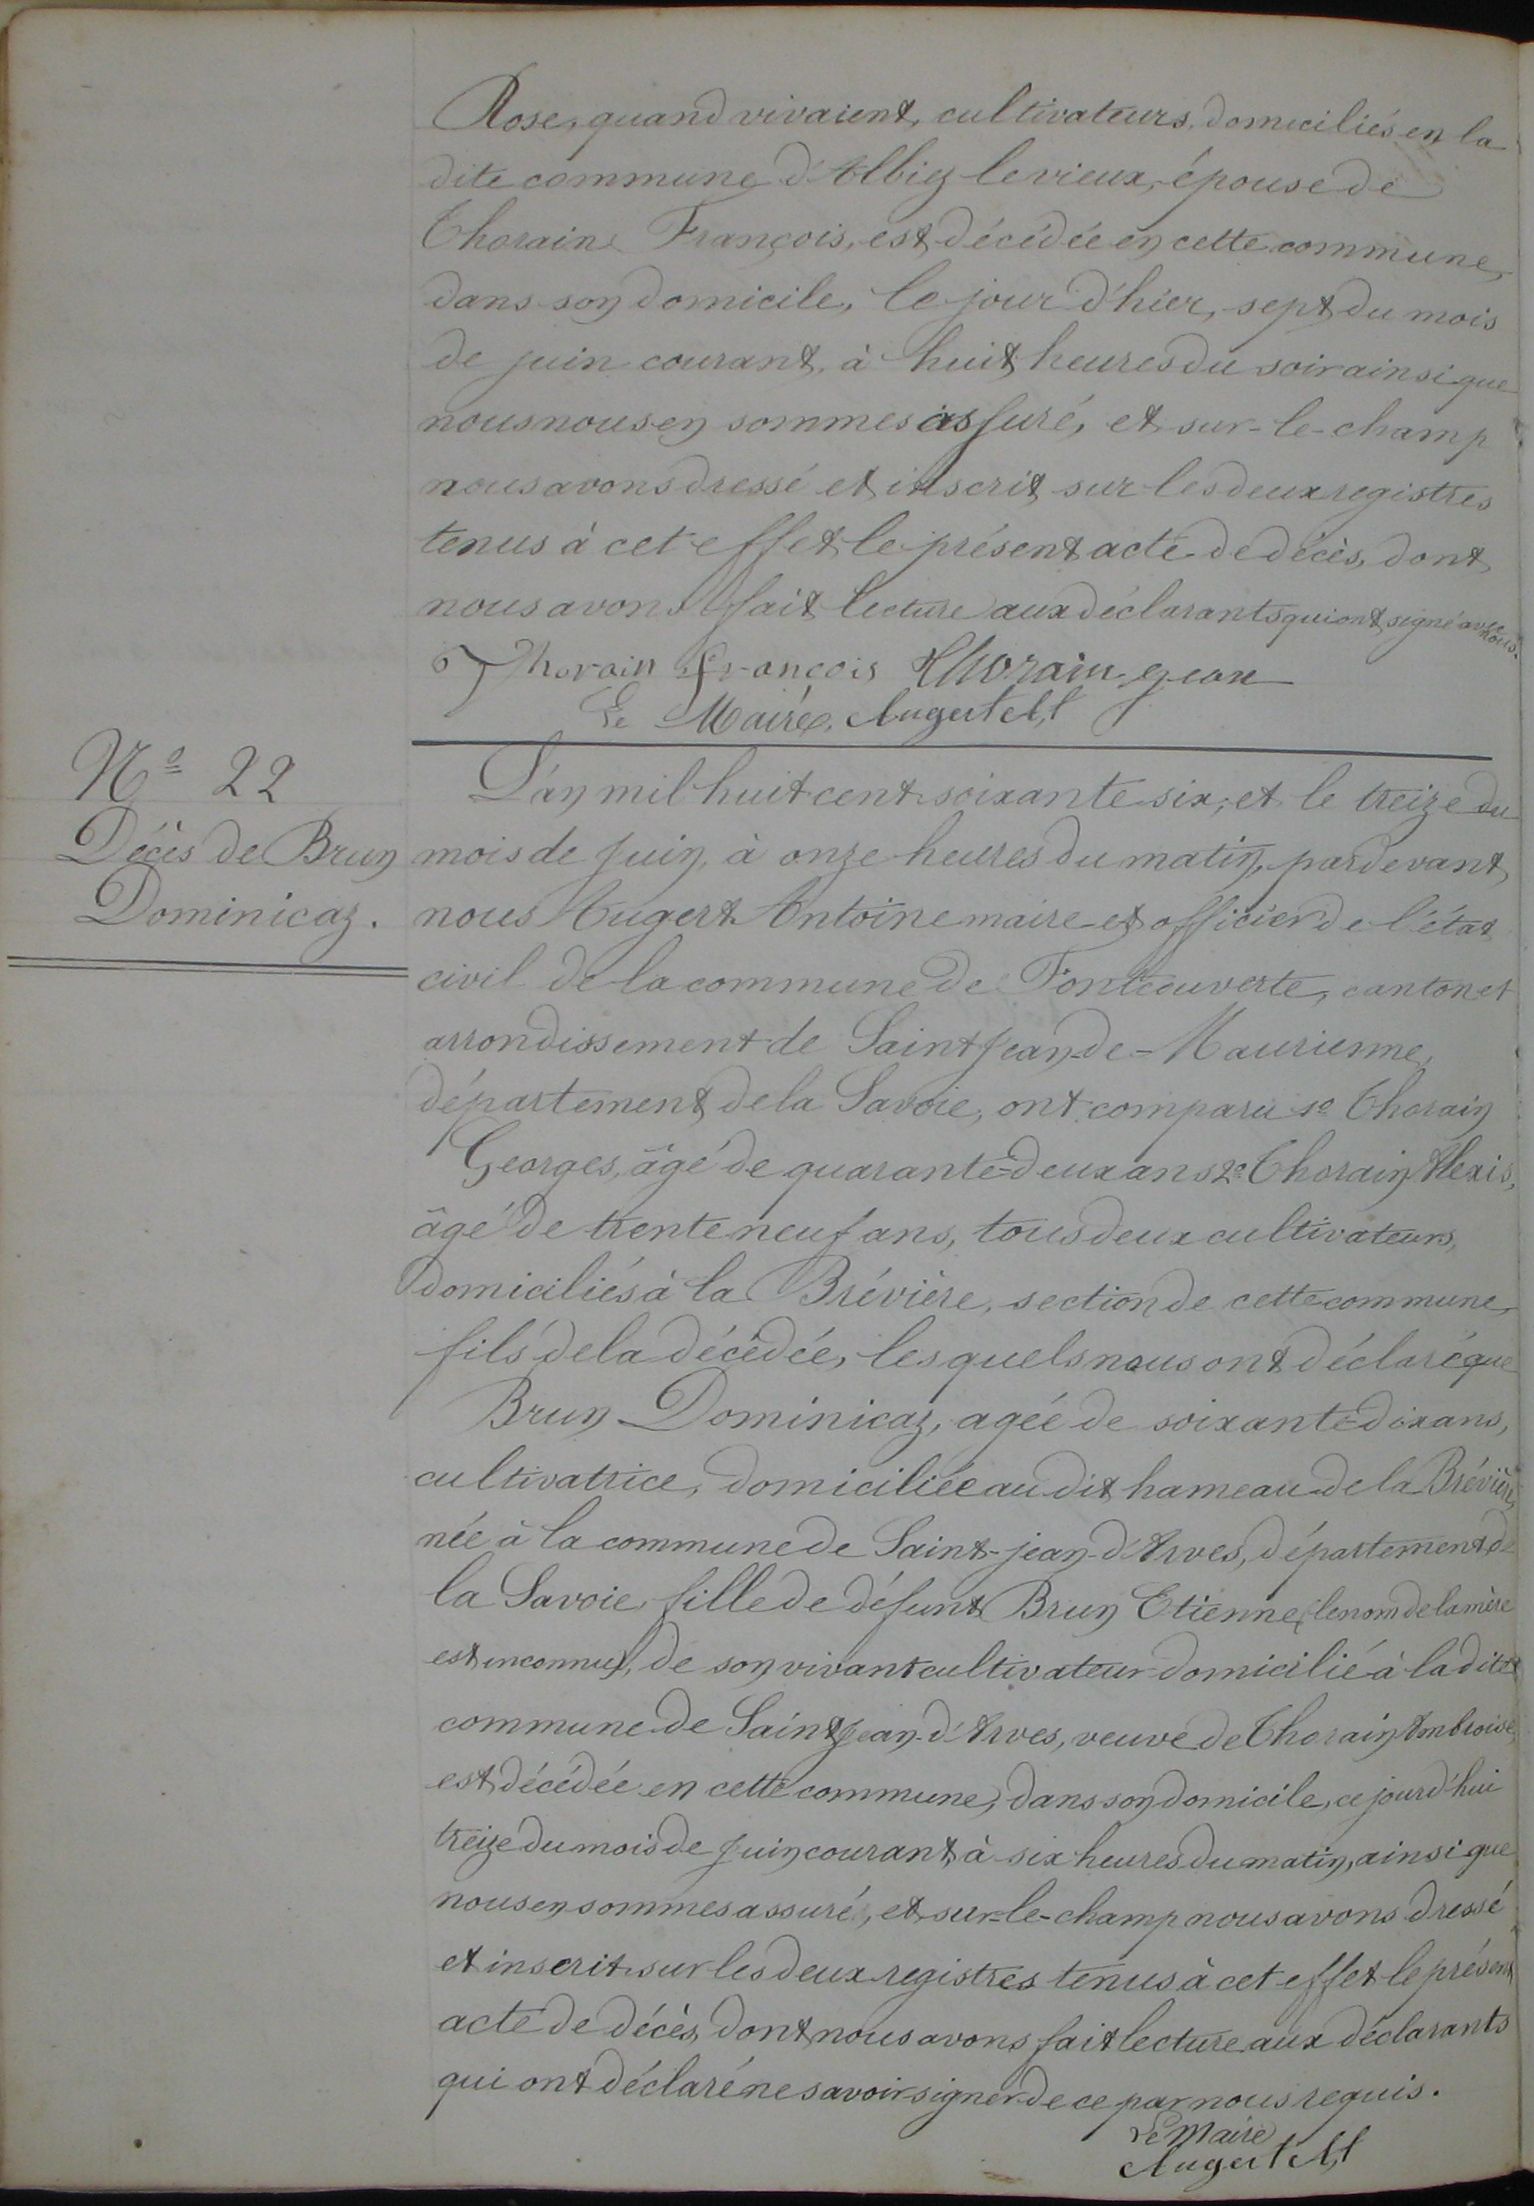 Rose, quand vivaient, cultivateurs, domiciliés en la
dite commune d'Albiez le vieux, épouse de
Thorain François, est décédée en cette commune,
dans son domicile, le jour d'hier, sept du mois
de juin courant, à huit heures du soir ainsi que
nous nous en sommes assuré, et sur-le-champ
nous avons dressé et inscrit sur les deux registres
tenus à cet effet le présent acte de décès, dont
nous avons fait lecture aux déclarants qui ont signé avec nous.
Thorain françois Thorain jean
Le Maire, Augert At
Nº 22
Décès de Brun
Dominicaz.
L'an mil huit cent soixante six, et le treize du
mois de juin, à onze heures du matin, pardevant
nous Augert Antoine maire et officier de l'état
civil de la commune de Fontcouverte, canton et
arrondissement de Saint Jean-de-Maurienne,
département de la Savoie, ont comparu 1º Thorain
Georges, âgé de quarante-deux ans 2º Thorain Alexis,
âgé de trente neuf ans, tous deux cultivateurs,
domiciliés à la Brévière, section de cette commune,
fils de la décédée, les quels nous ont déclaré que
Brun Dominicaz, agée de soixante-dix ans,
cultivatrice, domiciliée au dit hameau de la Brévière,
née à la commune de Saint-jean-d'Arves, département de
la Savoie, fille de défunt Brun Etienne, (le nom de la mère
est inconnu), de son vivant cultivateur domicilié à la dite
commune de Saint Jean-d'Arves, veuve de Thorain Ambroise,
est décédée en cette commune, dans son domicile, ce jourd'hui
treize du mois de juin courant, à six heures du matin, ainsi que
nous en sommes assuré, et sur-le-champ nous avons dressé
et inscrit sur les deux registres tenus à cet effet le présent
acte de décès, dont nous avons fait lecture aux déclarants
qui ont déclaré ne savoir signer de ce par nous requis.
Le Maire
Augert At